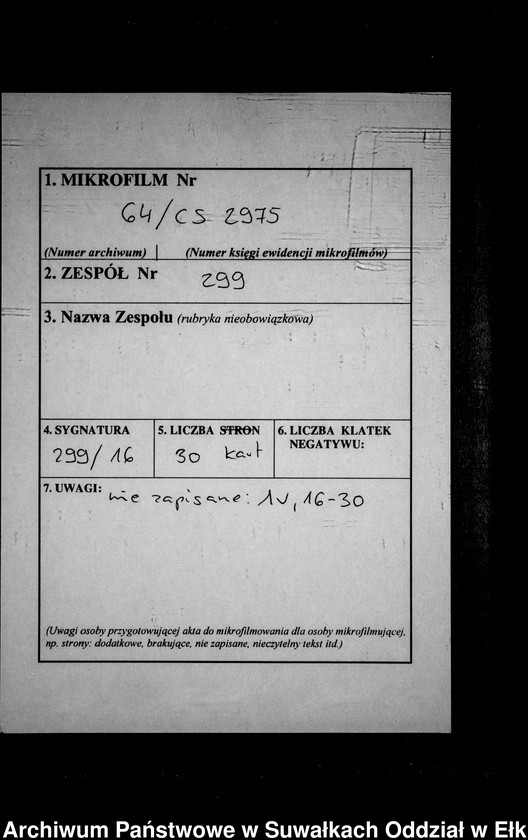 1. MIKROFILM Nr
64/CS 2975
(Numer archiwum) | (Numer księgi ewidencji mikrofilmów)
2. ZESPÓŁ Nr 299
3. Nazwa Zespołu (rubryka nieobowiązkowa)
4. SYGNATURA
299/16
5. LICZBA STRON
30 kart
6. LICZBA KLATEK
NEGATYWU:
7. UWAGI: nie zapisane: 1v, 16-30
(Uwagi osoby przygotowującej akta do mikrofilmowania dla osoby mikrofilmującej,
np. strony: dodatkowe, brakujące, nie zapisane, nieczytelny tekst itd.)
Archiwum Państwowe w Suwałkach Oddział w Ełk